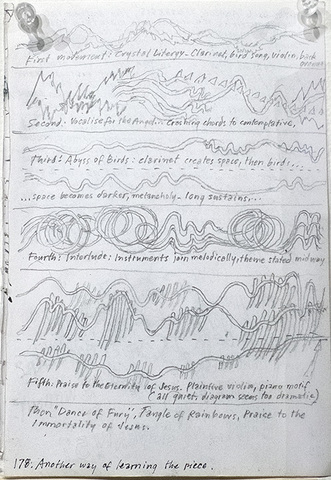 First movement: Crystal Liturgy - Clarinet, bird song, violin, bird
Second: Vocalise for the Angel... Crashing chords to contemplative.
Third: Abyss of Birds: clarinet creates space, then birds...
...space becomes darker, melancholy - long sustains...
Fourth: Interlude: Instruments join melodically, theme stated midway
Fifth: Praise to the Eternity of Jesus. Plaintive violin, piano motif
(all quiet, diagram seems too dramatic)
Then "Dance of Fury", Tangle of Rainbows, Praise to the
Immortality of Jesus.
178: Another way of learning the piece.